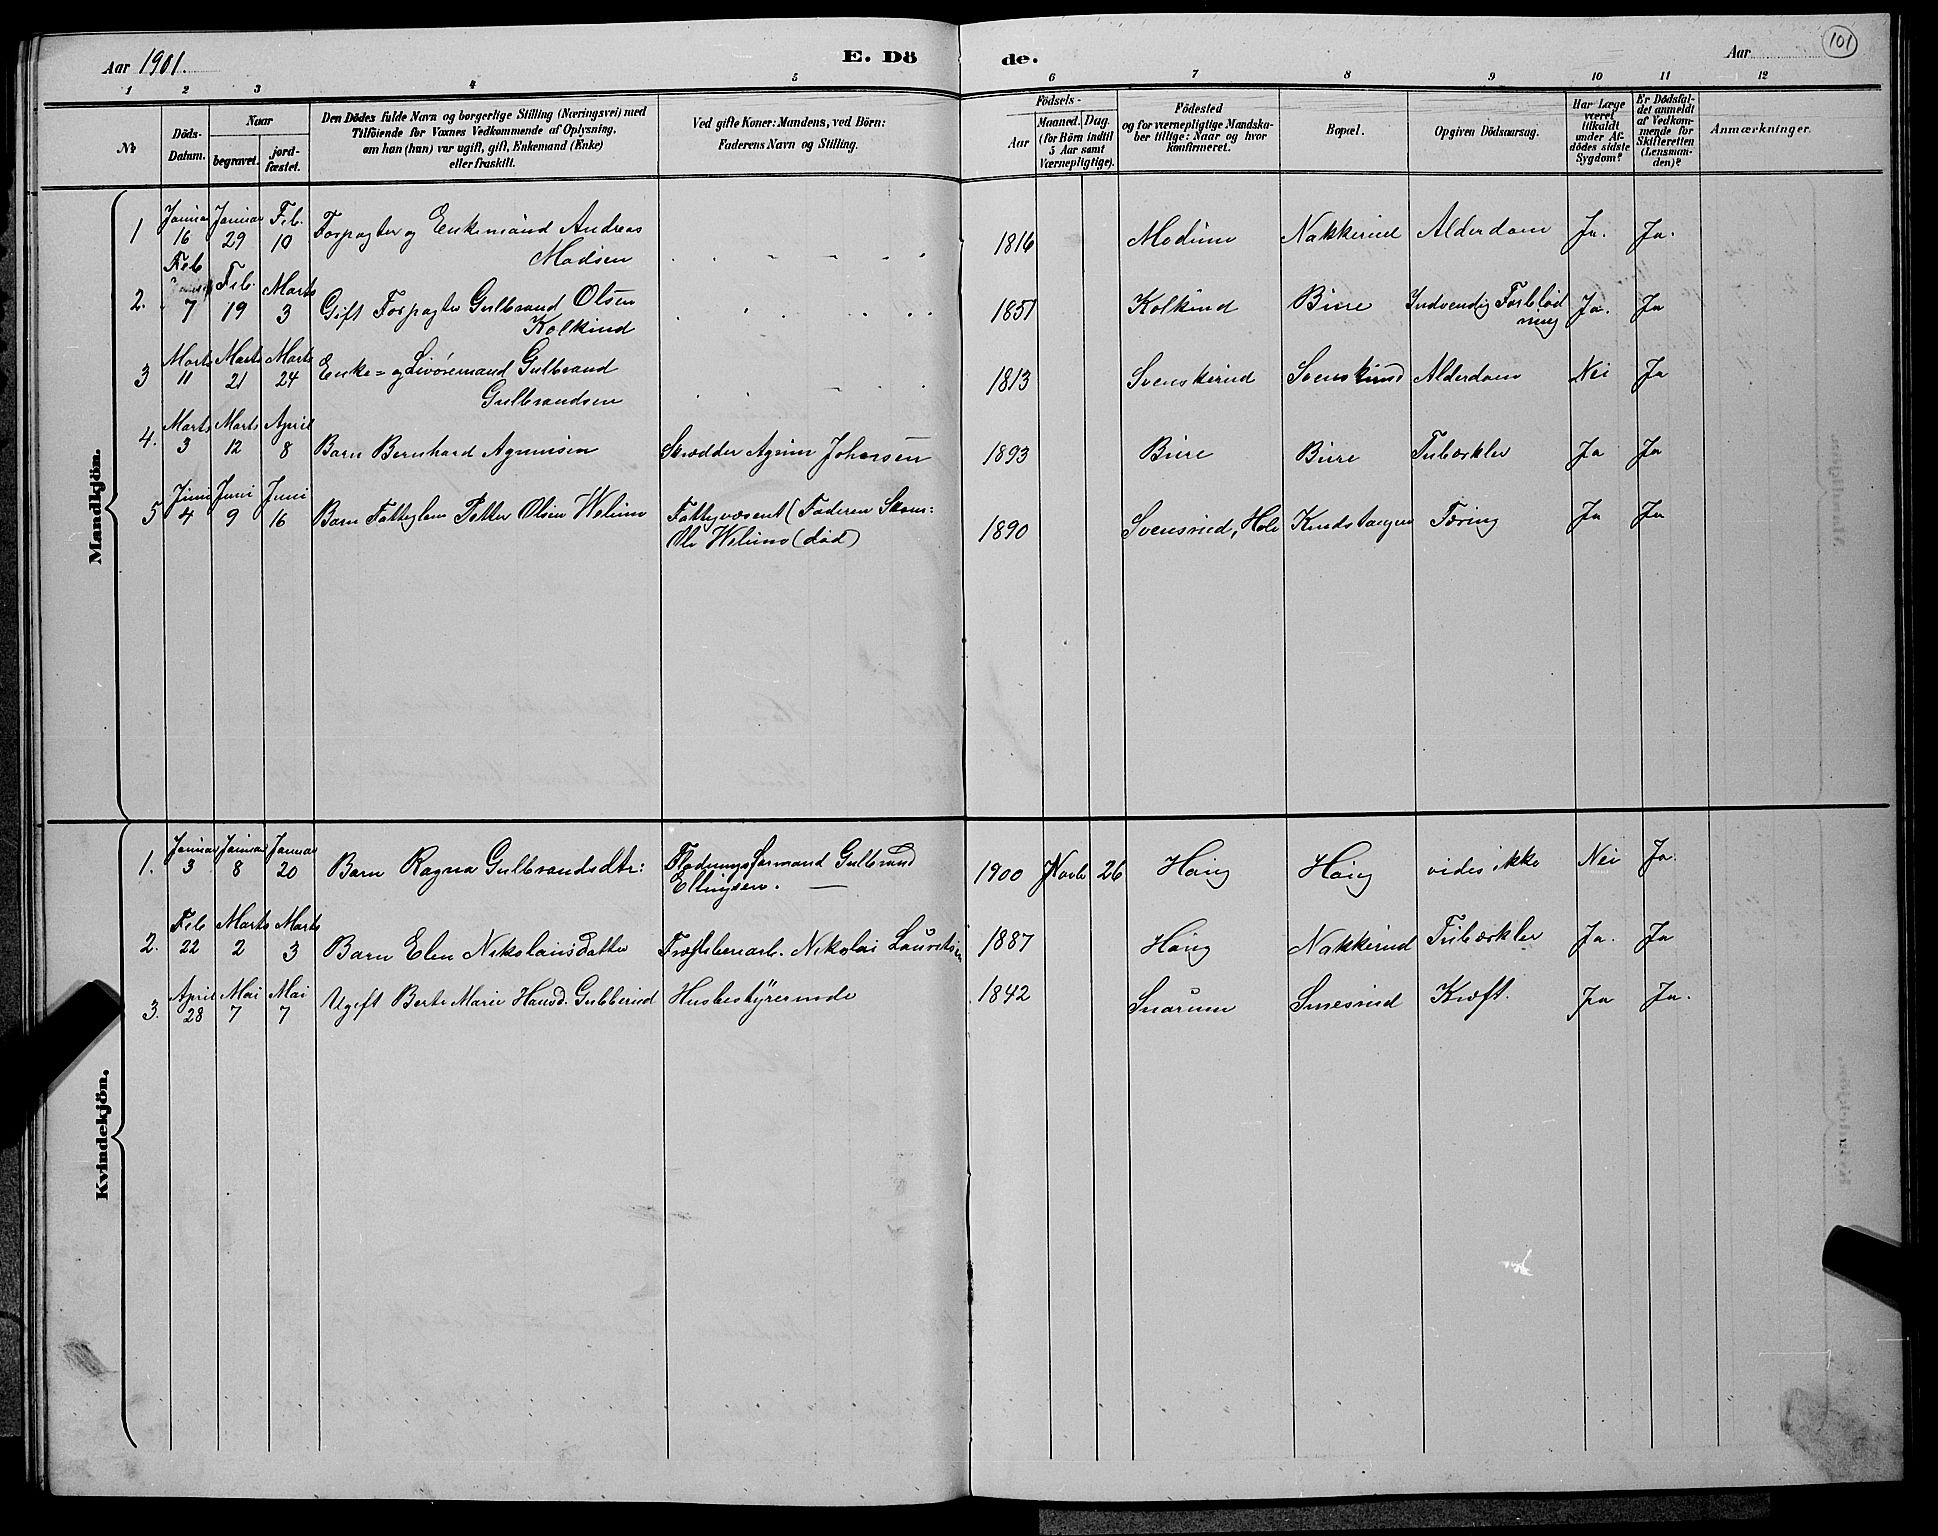 Aar 1901. E. Dö de. Aar 101
1 2 3 4 5 6 7 8 9 10 11 12
No
Döds-
Datum.
Naar
begravet.
jord-
fæstet.
Den Dödes fulde Navn og borgerlige Stilling (Næringsvei) med
Tilföiende for Voxnes Vedkommende af Oplysning,
om han (hun) var ugift, gift, Enkemand (Enke)
eller fraskilt.
Ved gifte Koner: Mandens, ved Börn:
Faderens Navn og Stilling.
Födsels-
Aar
Maaned. Dag.
(for Börn indtil
5 Aar samt
Værnepligtige).
Födested
og for værnepligtige Mandska-
ber tillige: Naar og hvor
konfirmeret.
Bopæl.
Opgiven Dödsaarsag.
Har Læge
været
tilkaldt
under Af-
dödes sidste
Sygdom?
Er Dödsfal-
det anmeldt
af Vedkom-
mende for
Skifteretten
(Lensman-
den)?
Anmærkninger.
Mandkjön.
1 Januar 16 Januar 29 Feb. 10 Forpagter og Enkemand Andreas
Madsen 1816 Modum Nakkerud Alderdom Ja. Ja.
2. Feb 7 Feb. 19 Marts 3 Gift Forpagter Gulbrand Olsen
Kolkind 1851 Kolkind Bure Indvendig Forblød
ning Ja. Ja
3 Marts 11 Marts 21 Marts 24 Enke= og Livøremand Gulbrand
Gulbrandsen 1813 Svenskerud Svenskerud Alderdom Nei Ja
4. Marts 3 Marts 12 April 8 Barn Bernhard Agunsen Skrædder Agun Johansen 1893 Bure Bure Tuberkler Ja Ja
5 Juni 4 Juni 9 Juni 16 Barn Fattiglem Petter Olsen Welum Fattigvæsenet (Faderen Skom:
Ole Welums (død) 1890 Svensrud, Hole Knudstangen Tæring Ja Ja
Kvindekjön.
1. Januar 3 Januar 8 Januar 20 Barn Ragna Gulbrandsdtr: Flødningsformand Gulbrand
Ellingsen. 1900 Novb 26 Haug Haug vides ikke Nei Ja.
2. Feb 22 Marts 2 Marts 3 Barn Elen Nikolaisdatter Træsliberiarb. Nikolai Lauritsen 1887 Haug Nakkerud Tuberkler Ja. Ja
3. April 28 Mai 7 Mai 7 Ugift Berte Marie Hansd. Gubberud Husbestyrerinde 1842 Snarum Smesrud Kræft. Ja Ja.